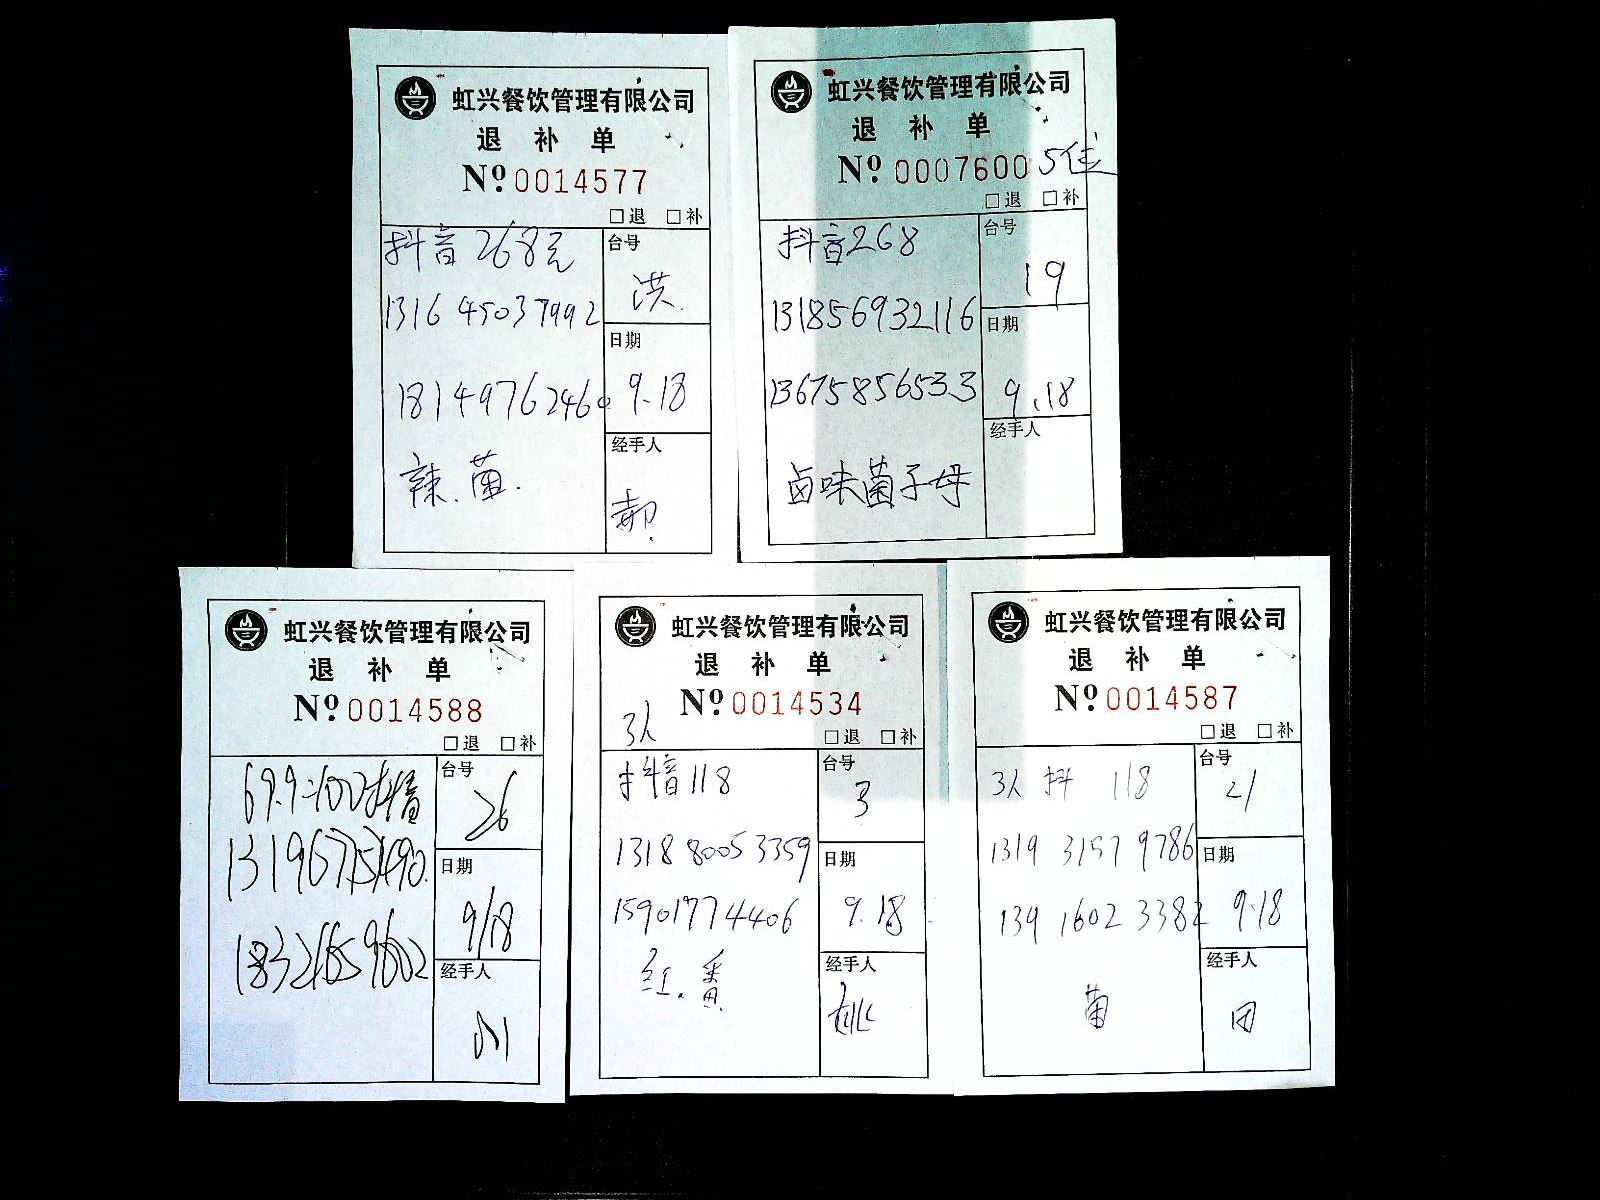 虹兴餐饮管理有限公司
退 补 单
№ 0014577
□退 □补
抖音 268元
台号
洪.
1316 45037992
日期
9.18
1814976246
经手人
辣.菌.
郝.
虹兴餐饮管理有限公司
退 补 单
№ 0007600 5位
□退 □补
抖音268
台号
19
131856932116
日期
13675856533
9.18
经手人
卤味菌子母
虹兴餐饮管理有限公司
退 补 单
№ 0014588
□退 □补
69.9=100抖音
台号
26
日期
9/18
18321659602
经手人
虹兴餐饮管理有限公司
退 补 单
№ 0014534
3人
□退 □补
抖音118
台号
3
1318 8005 3359
日期
15901774406
9.18
红.番
经手人
姚
虹兴餐饮管理有限公司
退 补 单
№ 0014587
□退 □补
3人 抖 118
台号
21
1319 3157 9786
日期
139 1602 3382
9.18
经手人
菌
田